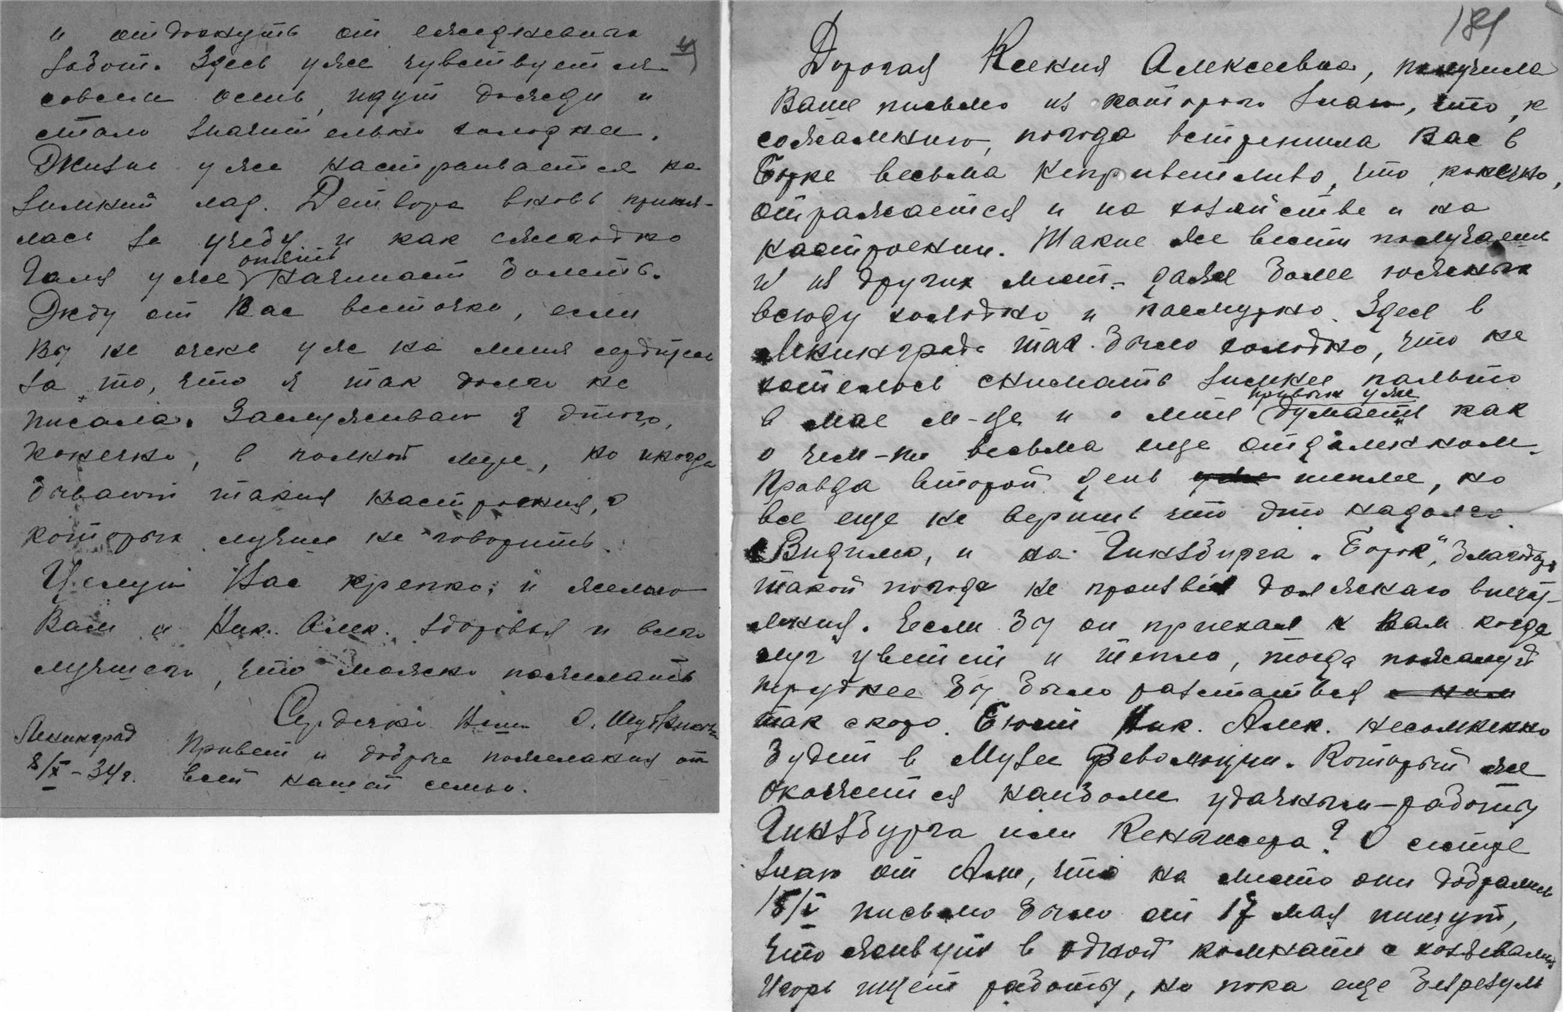 и отдохнуть от ежедневных
забот. Здесь уже чувствуется
совсем осень, идут дожди и
стало значительно холоднее.
Жизнь уже настраивается на
зимний лад. Детвора вновь приня-
лась за учебу и как ежегодно
Галя уже опять начинает болеть.
Жду от Вас весточки, если
Вы не очень уже на меня сердитесь
за то, что я так долго не
писала. Заслуживаю я этого,
конечно, в полной мере, но иногда
бывают такия настроения, о
которых лучше не говорить.
Целую Вас крепко и желаю
Вам и Ник. Алек. здоровья и всего
лучшего, что можно пожелать
Сердечно Ваш О.
Ленинград
8/X-34г.
Привет и добрые пожелания от
всей нашей семьи.
181
Дорогая Ксения Алексеевна, получила
Ваше письмо из которого знаю, что, к
сожалению, погода встретила Вас в
Борке весьма неприветливо, что, конечно,
отражается и на хозяйстве и на
настроении. Такие же вести получаем
и из других мест - даже более южных
всюду холодно и пасмурно. Здесь в
Ленинграде так было холодно, что не
хотелось снимать зимнее пальто
в мае м-це и о лете привык уже думаешь как
о чем-то весьма еще отдаленном.
Правда второй день уже теплее, но
все еще не веришь что это надолго.
Видимо, и на Гинзбурга „Борок", благодаря
такой погоде не произвел должнаго впечат-
ления. Если бы он приехал к Вам когда
луг цветет и тепло, тогда пожалуй
труднее бы было разстаться с ним
так скоро. Бюст Ник. Алек. несомненно
будет в Музее Революции. Который же
окажется наиболее удачным - работы
Гинзбурга или Кенигсера? О сестре
знаю от Али, что на место они добрались
15/V письмо было от 17 мая пишут,
что живут в одной комнате с хозяевами
Игорь ищет работу, но пока еще безрезуль